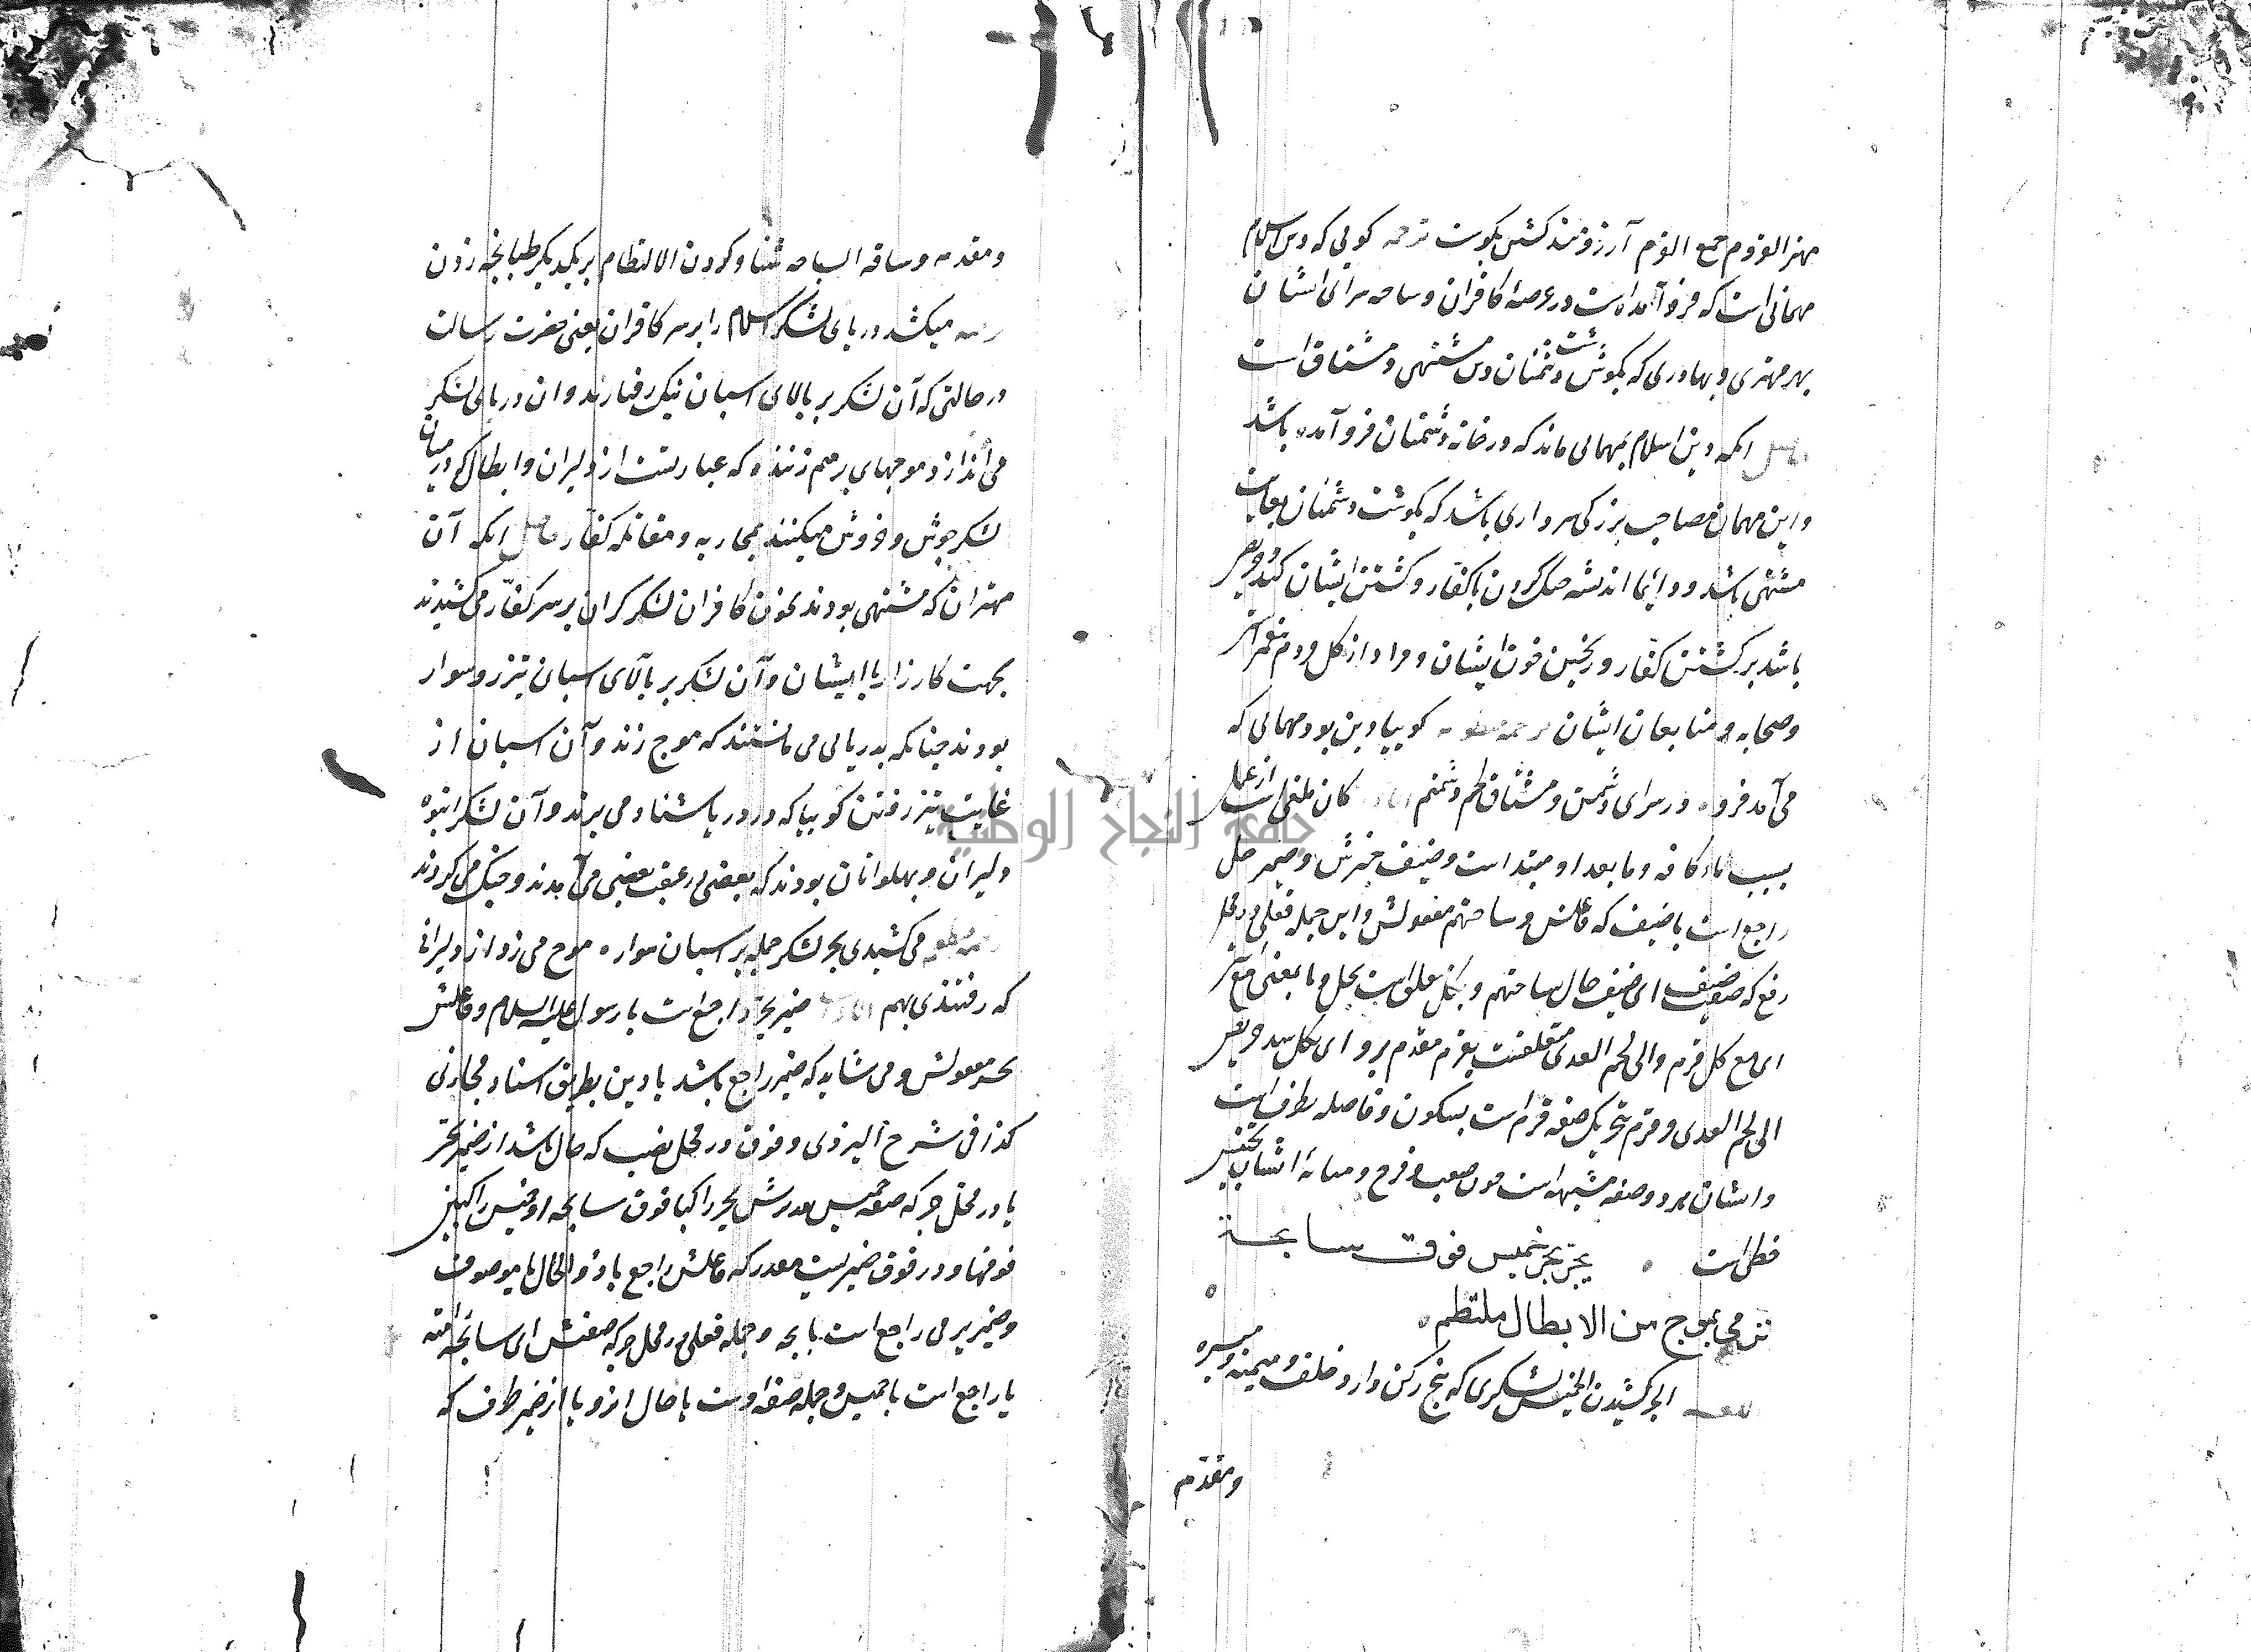 مهتر القروم جمع القرم آرزومند کشتن بکوشت ترجمه کویی که دین اسلام
مهمانی است که فرو آمده است در عرصهٔ کافران و ساحه سرای ایشان
بهر مهتری و بهادری که بکوشت دشمنان دین مشتهی و مشتاق است
حاصل انکه دین اسلام بمهمانی ماند که در خانه دشمنان فرو آمده باشد
و این مهمان مصاحب بزرکی سرداری باشد که بکوشت دشمنان بغایت
مشتهی باشد و دائما اندیشه جنک کردن با کفار و کشتن ایشان کند و حریص
باشد بر کشتن کفار و ریختن خون ایشان و مراد از کل قرم پیغمبر است
و صحابه و متابعان ایشان ترجمه منظومه کوییا دین بود مهمانی که
می آمد فرو در سرای دشمن و مشتاق لحم دشمنم کان ملغی است از عمل
بسبب ماء کافه و ما بعد او مبتدا است و ضیف خبرش و ضمیر حل
راجع است با ضیف که فاعلش و ساحتهم مفعولش و این جمله فعلی در محل
رفع که صفت ضیف ای ضیف حال ساحتهم و بکل متعلق است بحل و با بمعنی مع
ای مع کل قرم و الی لحم العدی متعلقست بقرم مقدم برو ای بکل سید حریص
الی لحم العدی و قرم بتحریک صفه قرم است بسکون و فاصله بطرف است
و ایشان هر دو صفه مشبهه است چون صعب و فرح و میانه ایشان تجنیس
خطی است یجر بحر خمیس فوق سابحة
ترمی بموج من الابطال ملتطم
اللغه الجر کشیدن الخمیس لشکری که پنج رکن دارد خلف و میمنه و میسره
و مقدم
و مقدمه و ساقه السباحه شنا و کردن الالتطام بر یکدیکر طبانچه زدن
ترجمه میکشد دریای لشکر اسلام را بر سر کافران یعنی حضرت رسالت
در حالتی که آن لشکر بر بالای اسبان نیک رفتارند و ان دریای لشکر
می اندازد موجهای برهم زننده که عبارتست از دلیران و ابطال که در میان
لشکر جوش و خروش میکنند بمحاربه و مقاتله کفار حاصل انکه آن
مهتران که مشتهی بودند بخون کافران لشکر کران بر سر کفار می کشیدند
بجهت کارزار با ایشان و آن لشکر بر بالای اسبان تیزرو سوار
بودند چنانکه بدریایی می مانستند که موج زند و آن اسبان از
غایت تیز رفتن کوییا که در دریا شنا و می برند و آن لشکر انبوه
دلیران و بهلوانان بودند که بعضی در عقب بعضی می آمدند و جنک می کردند
ترجمه منظومه می کشیدی بحر لشکر جمله بر اسبان سواره موج می زد از دلیرانی
که رفتندی بهم ضمیر یجر راجع است با رسول علیه السلام و فاعلش
بحر مفعولش و می شاید که ضمیر راجع باشد با دین بطریق اسناد مجازی
کذا فی شرح الیزدی و فوق در محل نصب که حال باشد از ضمیر یجر
یا در محل جر که صفه خمیس یجر راکبا فوق سابحه او خمیس راکبین
فوقها و در فوق ضمیریست مقدر که فاعلش راجع با ذو الحال یا موصوف
و ضمیر یرمی راجع است با بحر و جمله فعلی در محل جر که صفتش ای سابحه رامیه
یا راجع است با خمیس و جمله صفه اوست یا حال ازو یا از ضمیر ظرف که